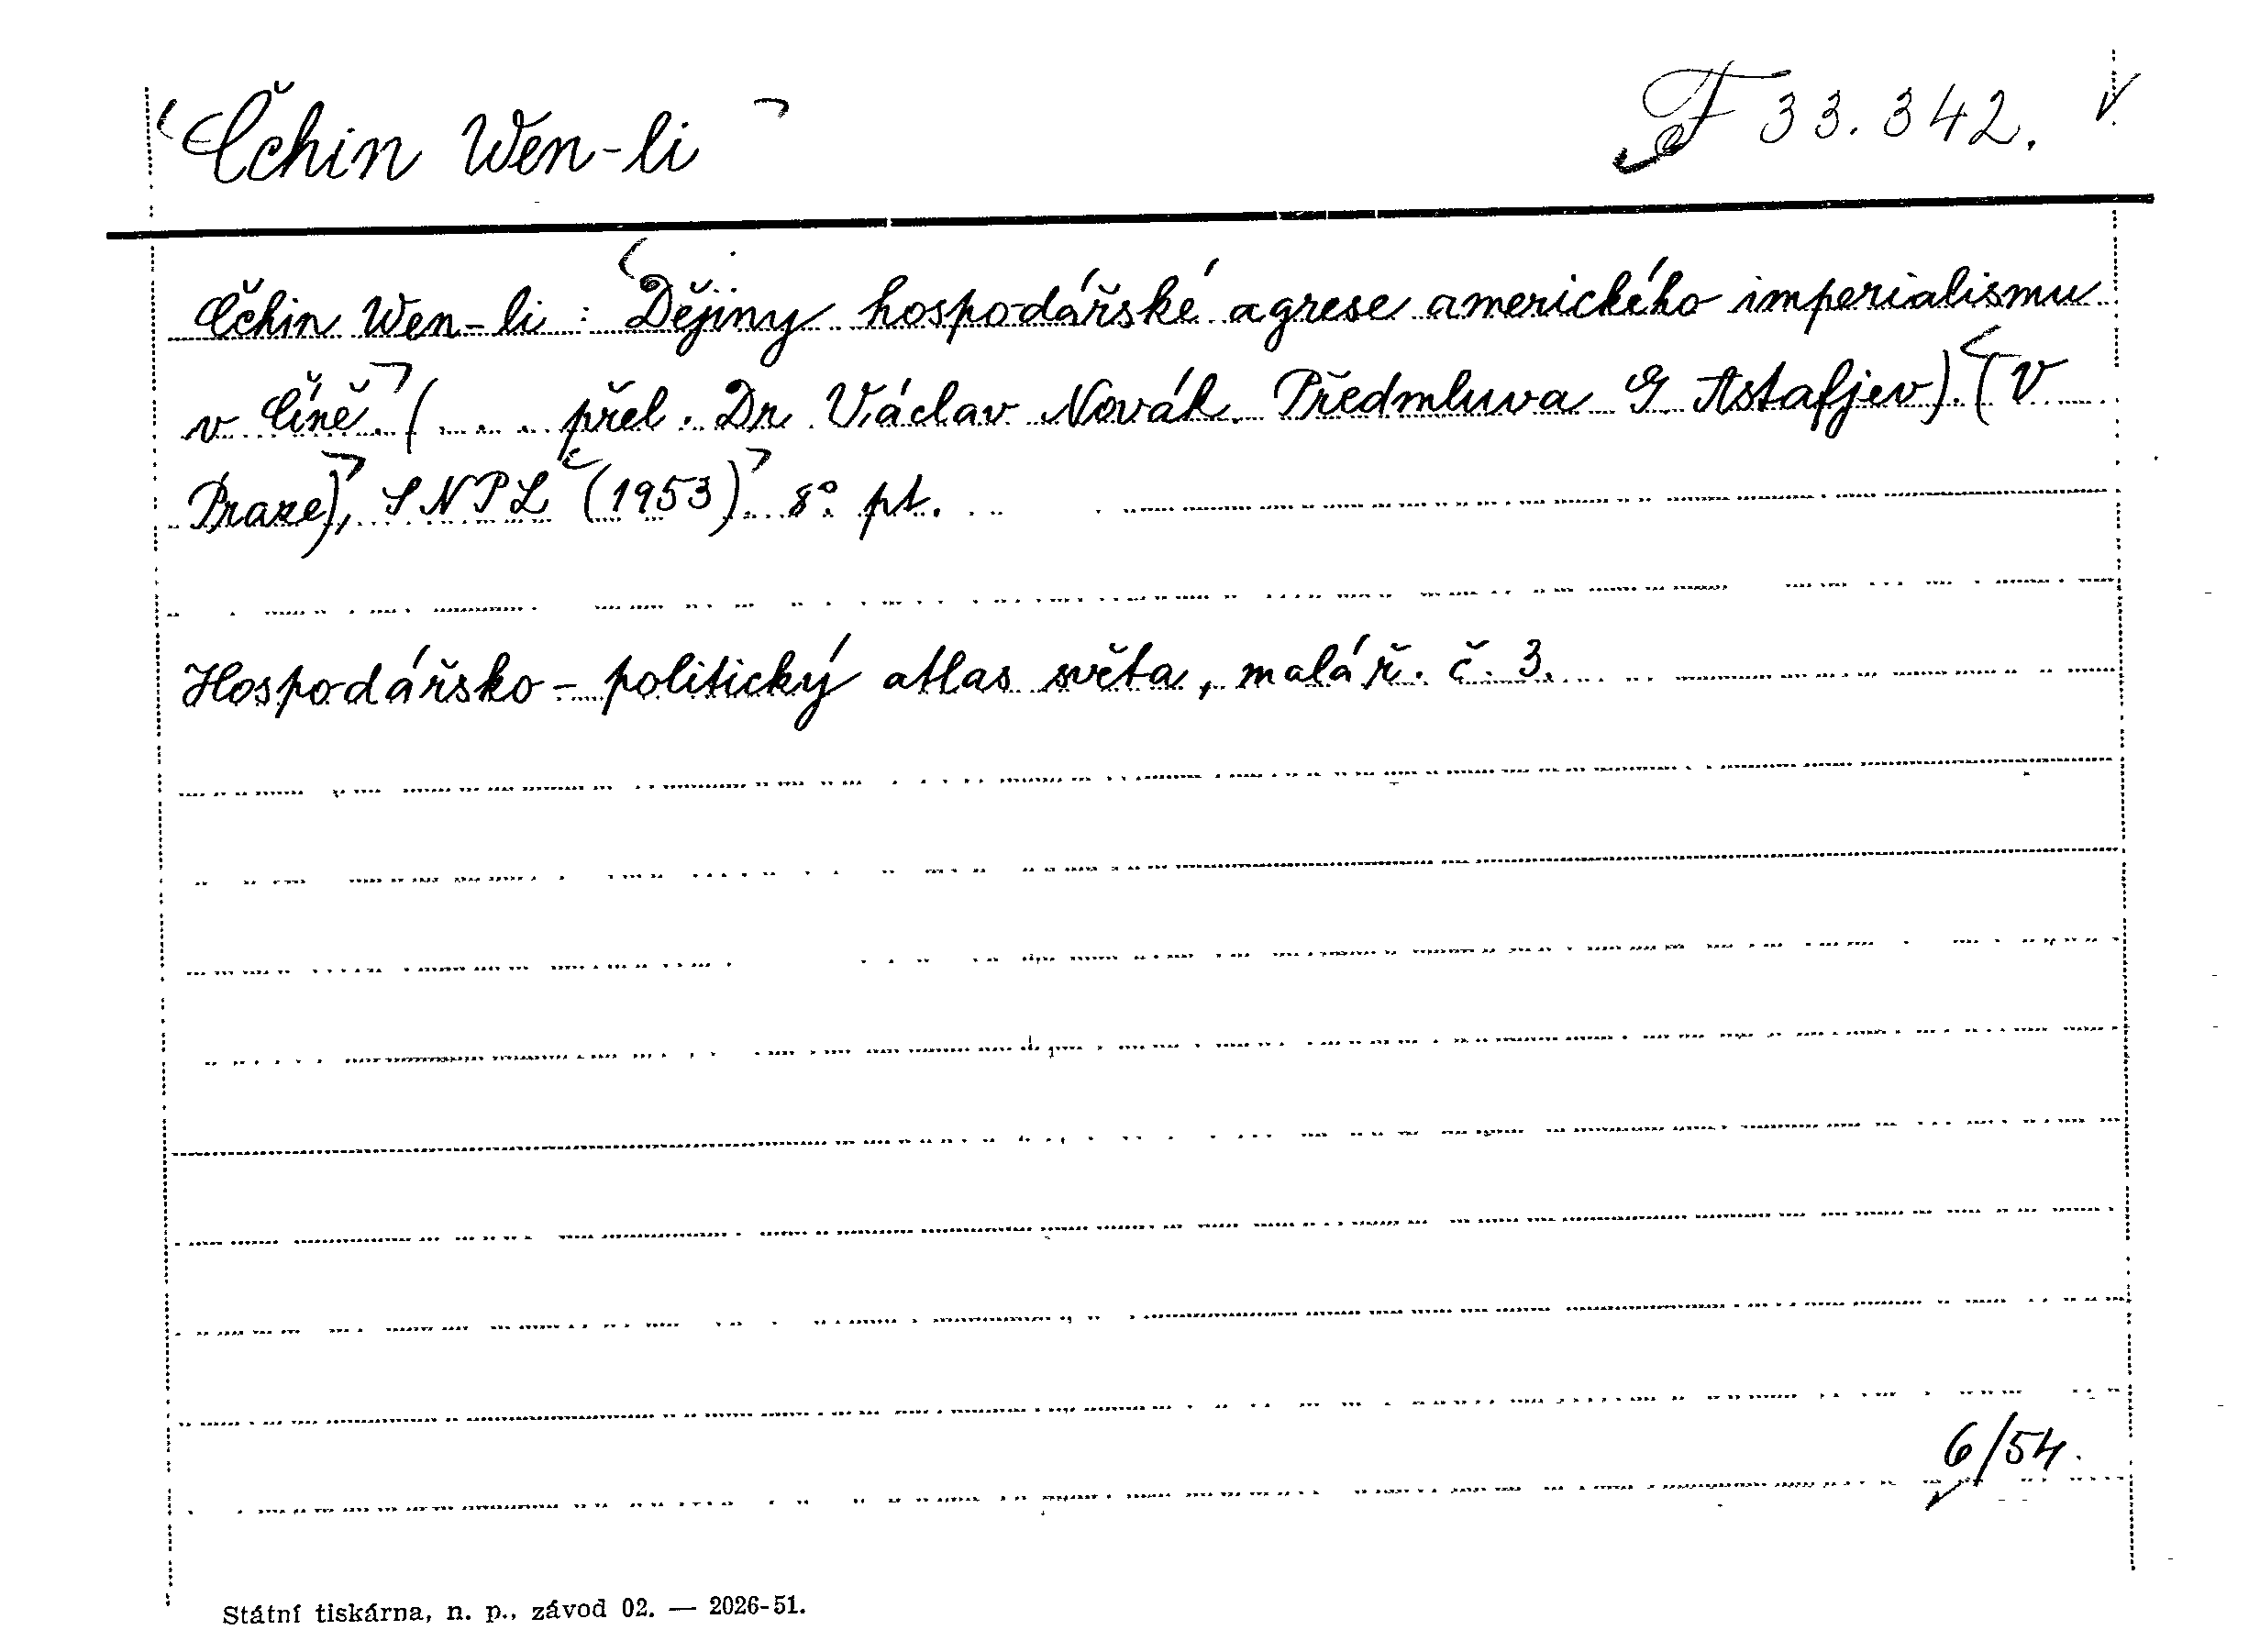 Čchin Wen-li F 33.342.
Čchin Wen-li: Dějiny hospodářské agrese amerického imperialismu
v Číně. (... přel. Dr. Václav Novák. Předmluva G. Astafjev). (V
Praze), SNPL (1953). 8° pt.
Hospodářsko-politický atlas světa, malá ř. č. 3.
6/54.
Státní tiskárna, n. p., závod 02. — 2026-51.